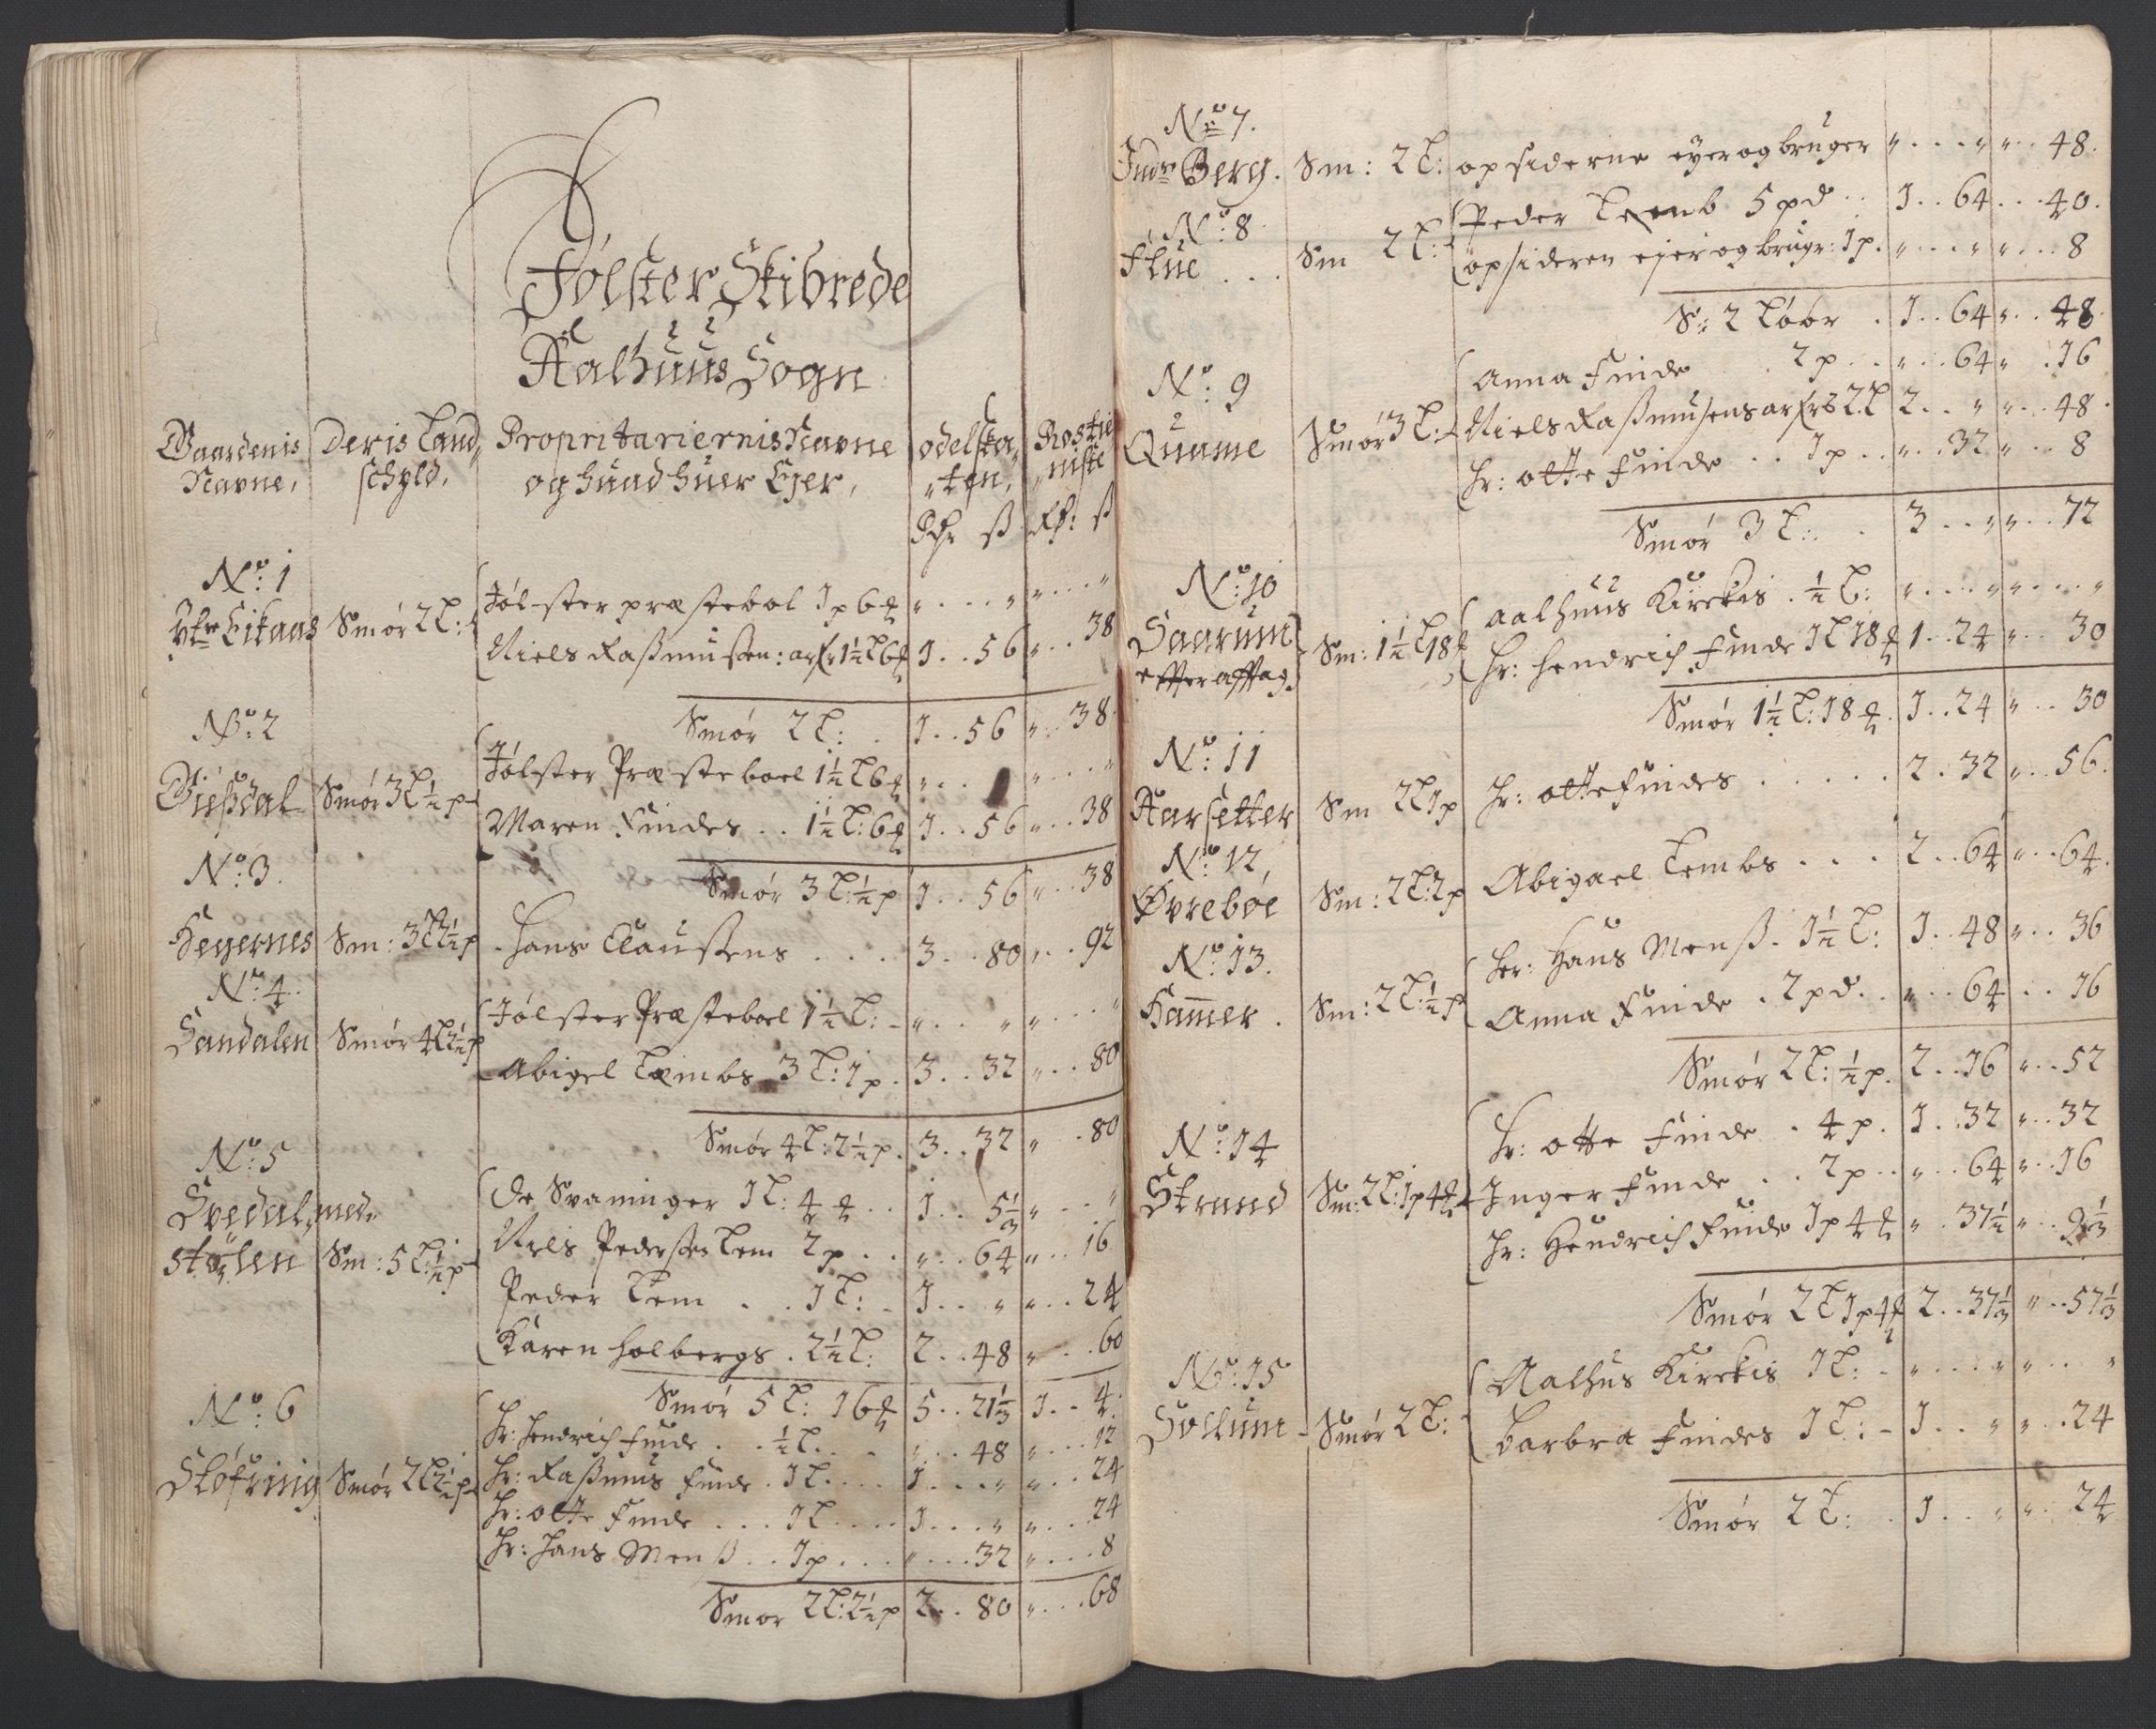 Jölster Skibrede
Aalhuus Sogn
Gaardenis Navne, Deris Land schyld, Propritariernis Navne og huad huer Ejer, odelska ten, Rostie niste
Rdr ß Rdr ß
No: 1
Ytre Eikaas Smör 2 L: Jölster præstebol 1 p 6 " . . . " " . . . "
Niels Rassmussen: arf: 1½ L 6 1 . . 56 " . . 38
Smör 2 L: . 1 . . 56 " . . 38
No: 2
Giesdal Smör 3 L ½ p Jölster Præsteboel 1½ L 6 " . . . " . . . "
Maren Findes . . 1½ L: 6 1 . . 56 " . . 38
Smör 3 L: ½ p 1 . . 56 " . . 38
No: 3.
Hegernes Sm: 3 L 2½ p Hans Claussens . . . 3 . . 80 " . . 92
No: 4.
Sandalen Smör 4 L 2½ p Jölster Præsteboel 1½ L: " . . " " . . . "
Abigel Læmbs 3 L: 1 p . 3 . . 32 " . . 80
Smör 4 L: 2½ p . 3 . . 32 " . . 80
No: 5
Svedal, med
stölen Sm: 5 L: ½ p De Svaninger 1 L: 4 . . 1 . . 5⅓ " . . "
Niels Pederssen Lem 2 p . . " . . 64 " . . 16
Peder Lem . . 1 L: . 1 . . " " . . 24
Karen Holbergs . 2½ L: 2 . . 48 " . . 60
Smör 5 L: 16 5 . . 21⅓ 1 . . 4.
No: 6
Stöfring Smör 2 L 2½ p Hr: Hendrich Finde . . ½ L . . . " . . 48 " . . . 12
Hr: Rassmus Finde . 1 L . . . . 1 . . . " " . . 24
Hr: otte Finde . . . 1 L . . . . 1 . . . " " . . . 24
Hr: Hans Menß . . 1 p . . . " . . . 32 " . . . 8
Smör 2 L: 2½ p 2 . . 80 " . . . 68
No 7.
Indre Berg. Sm: 2 L: opsiderne eyer og bruger " . . . " " . . 48.
No: 8.
Flue . . . Sm 2 L: Peder Lemb 5 pd . . 1 . . 64 . . . 40.
opsideren ejer og bruger: 1 p. " . . . " " . . . 8
S: 2 Löbr . 1 . . 64 " . . 48.
No: 9
Quame Smör 3 L: Anna Finde . 2 p . . " . . 64 " . 16
Niels Rassmusens arfr 2 L 2 . . " " . . 48 .
Hr: otte Finde . . 1 p . . " . . 32 " . . 8
Smör 3 L: . 3 . . " " . . 72
No: 10
Saarum
efter afftag Sm: 1½ L 18 Aalhuus Kirckis . ½ L: " . . . " " . . . "
Hr: Hendrich Finde 1 L 18 1 . . 24 " . . 30
Smör 1½ L: 18 . 1 . . 24 " . . 30
No: 11
Aarsetter Sm 2 L 1 p Hr: otte Findes . . . . . 2 . 32 " . . 56.
No: 12,
Øvreböe Sm: 2 L: 2 p Abigael Lembs . . . 2 . . 64 " . . 64.
No: 13.
Hammer . Sm: 2 L: ½ p Hr: Hans Menß . 1½ L: 1 . . 48 " . . 36
Anna Finde . 2 pd . . " . . 64 . . 16
Smör 2 L: ½ p. 2 . . 16 " . . 52
No: 14
Strand Sm: 2 L: 1 p 4 Hr: otte Finde . 4 p . 1 . . 32 " . . 32
Inger Finde . . 2 p . . " . . 64 " . . 16
Hr: Hendrich Finde 1 p 4 " . 37½ " . . 9⅓
Smör 2 L 1 p 4 2 . . 37⅓ " . . 57⅓
No: 15
Sollum Smör 2 L: Aalhus Kirckis 1 L: . " . . . " " . . "
Barbra Findes 1 L: . 1 . . " " . . 24
Smör 2 L: . 1 . . " " . . 24